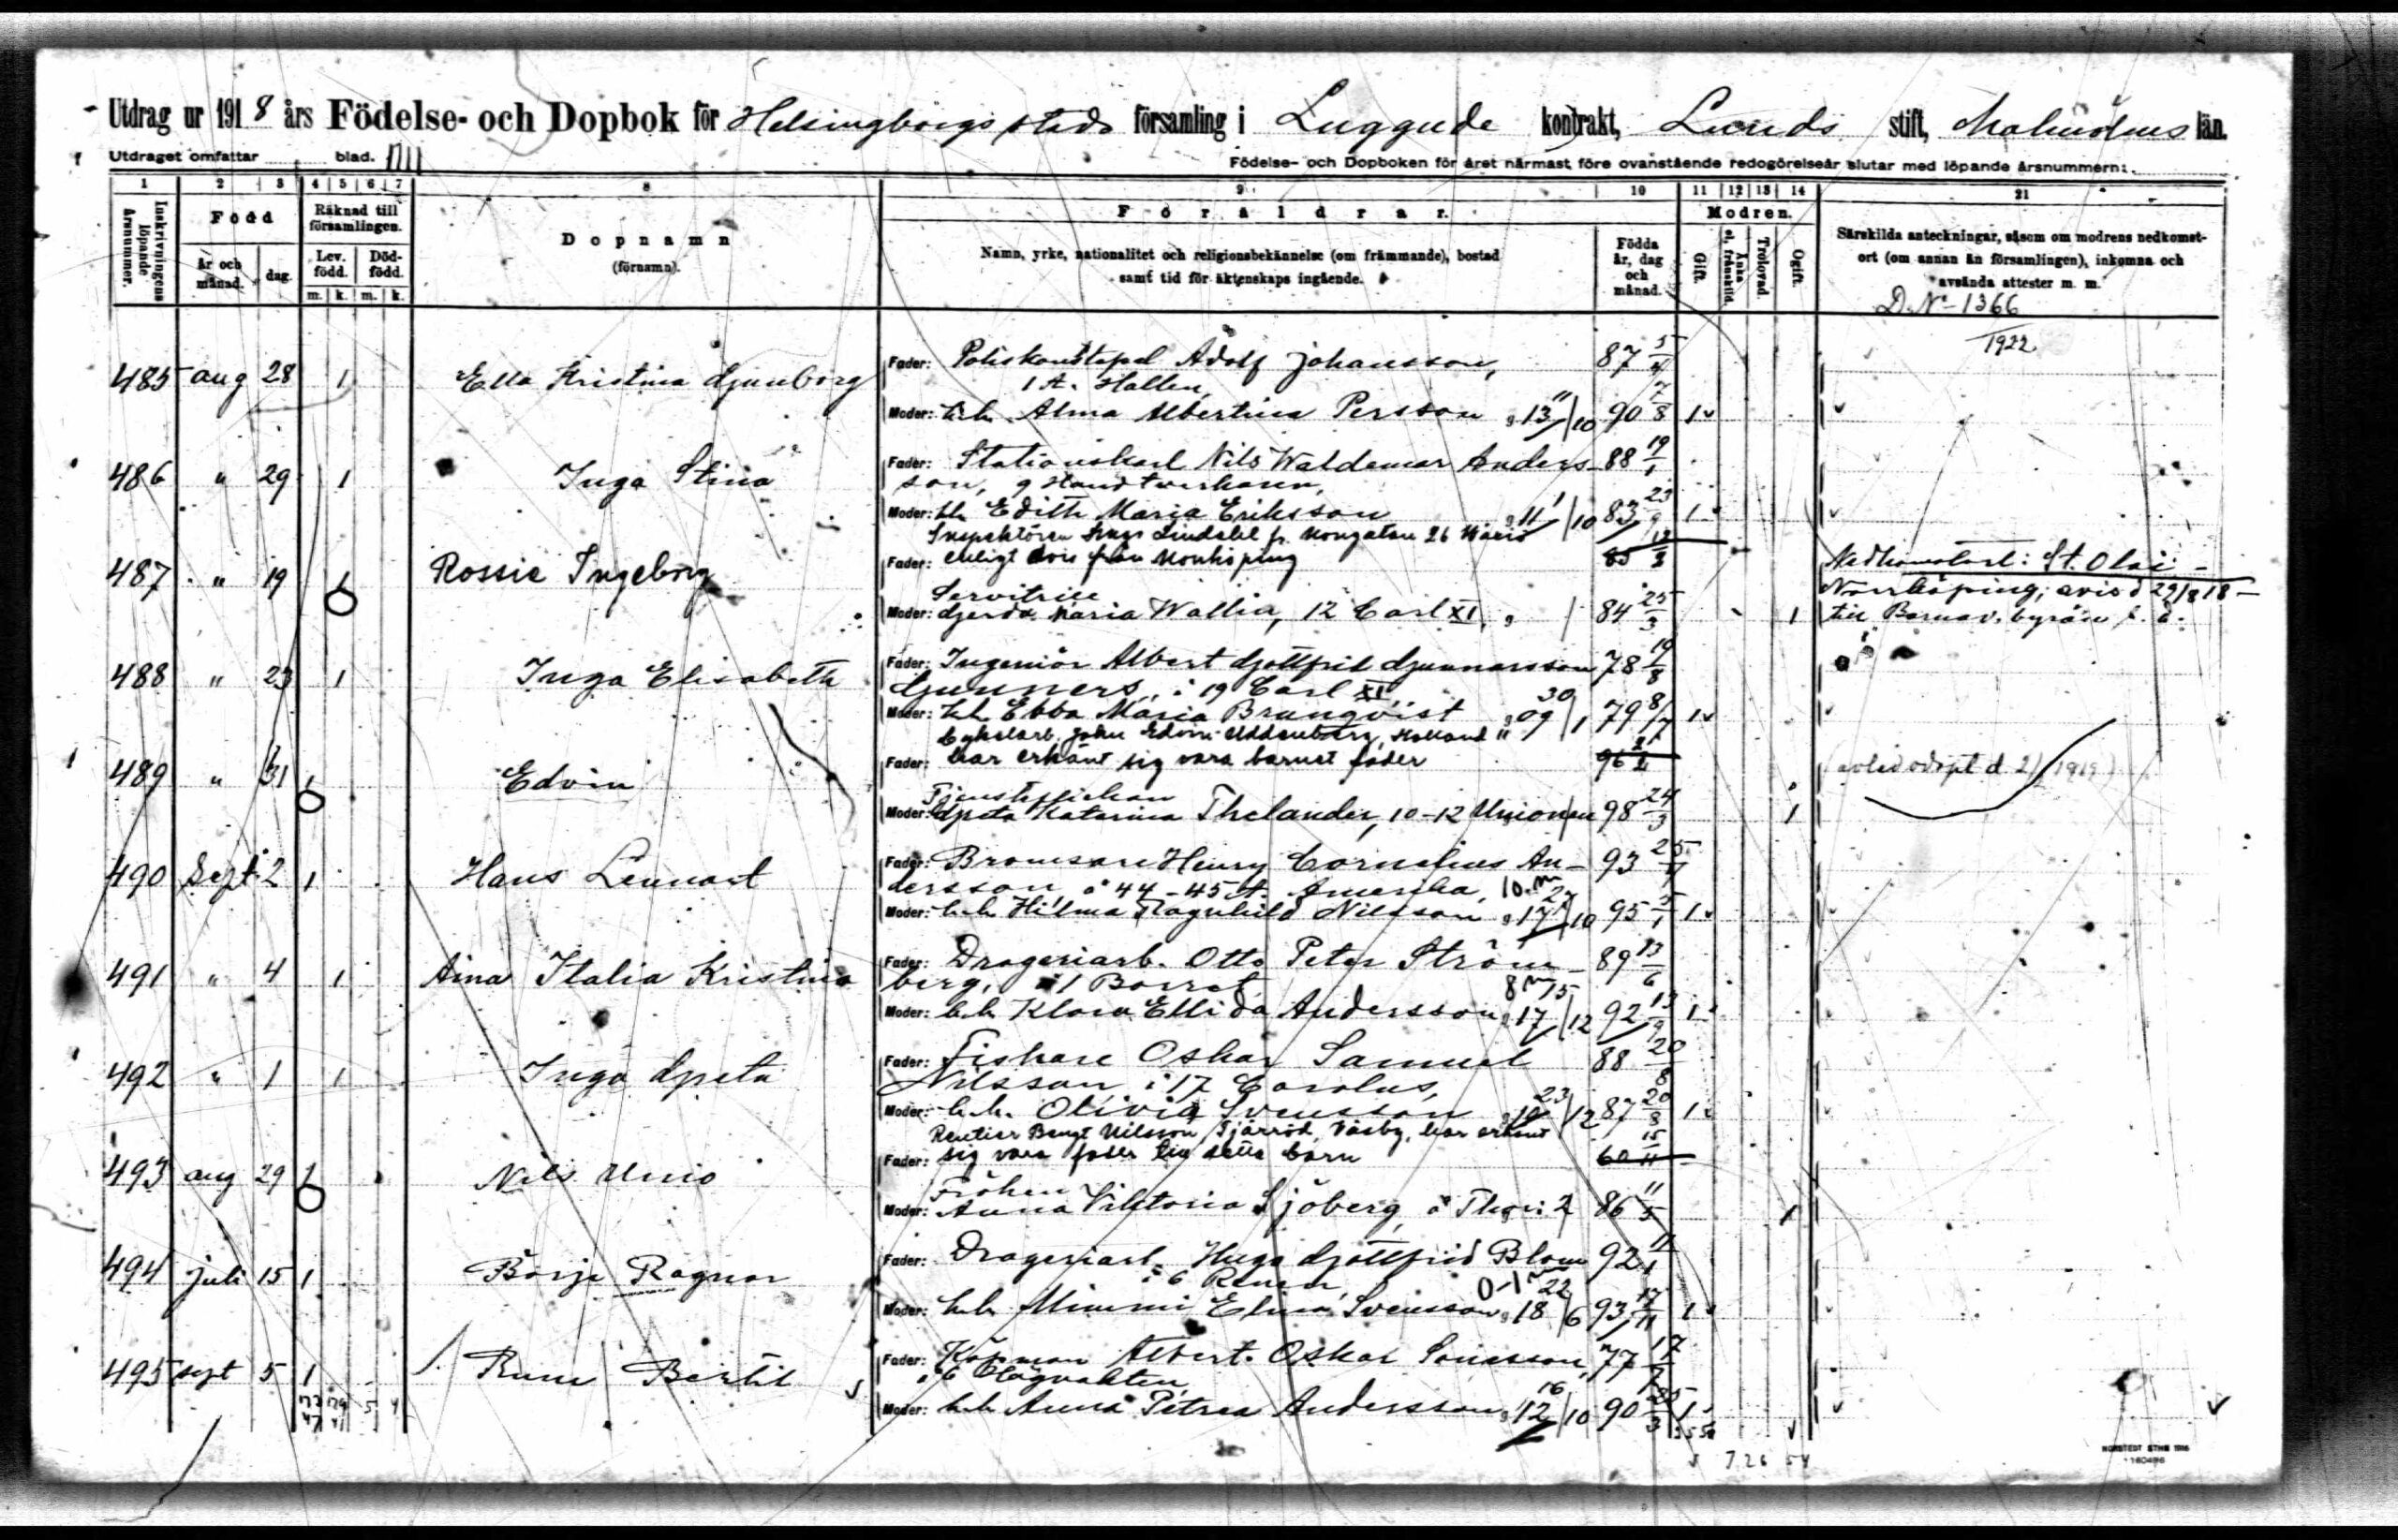 Utdrag ur 1918 års Födelse- och Dopbok för Helsingborgs stads församling i Luggude kontrakt, Lunds stift, Malmöhus län.
Utdraget omfattar blad.
Födelse- och Dopboken för året närmast före ovanstående redogörelseår slutar med löpande årsnummern:
1 2 3 4 5 6 7 8 9 10 11 12 13 14 21
Inskrivningens löpande årsnummer.
Född
År och månad.
dag.
Räknad till församlingen.
Lev. född.
Död-född.
m. k. m. k.
Dopnamn
(förnamn).
Föräldrar.
Namn, yrke, nationalitet och religionsbekännelse (om främmande), bostad
samt tid för äktenskaps ingående.
Födda år, dag och månad.
Modren.
Gift.
Änka el. frånskild.
Trolovad.
Ogift.
Särskilda anteckningar, såsom om modrens nedkomst-
ort (om annan än församlingen), inkomna och
avsända attester m. m.
D. No 1366
1922
485 aug 28 1 Ella Kristina Gunborg
Fader: Poliskonstapel Adolf Johansson, 87 5/4
1 A. Hallen,
Moder: h.h. Alma Albertina Persson g. 13 11/10 90 7/8 1
486 " 29 1 Inga Stina
Fader: Stationskarl Nils Waldemar Anders- 88 19/1
son, 9 Handtverkaren,
Moder: h.h. Edith Maria Eriksson g. 11 1/10 83 23/9 1
487 " 19 1 Rossie Ingeborg
Inspektören Hugo Lindahl fr. Kungatan 26
Fader: enligt avis från Norrköping
Servitrice
Moder: Gerda Maria Wallia, 12 Carl XI, g. 84 25/3 1
Nedkomstort: St. Olai -
Norrköping, avis d 29/8 18 -
till Barnav. byrån s. d.
488 " 23 1 Inga Elisabeth
Fader: Ingeniör Albert Gottfrid Gunnarsson 78 19/8
Gunners, i 19 Carl XI,
Moder: h.h. Ebba Maria Brunqvist g. 09 30/1 79 8/7 1
489 " 31 1 Edvin
Cykelarb. John Edvin Uddenberg,
Fader: har erkänt sig vara barnet fader
Tjensteflickan
Moder: Greta Katarina Thelander, 10-12 Unionen 98 24/3 1
490 Sept. 2 1 Hans Lennart
Fader: Bromsare Henry Cornelius An- 93 25/7
dersson, å 44-45 A. Amerika, 10 m
Moder: h.h. Hilma Ragnhild Nilsson g. 17 27/10 95 5/1 1
491 " 4 1 Aina Italia Kristina
Fader: Drageriarb. Otto Peter Ström- 89 23/6
berg, i 1 Borret 8 m
Moder: h.h. Klara Ellida Andersson g. 17 15/12 92 13/9 1
492 " 1 1 Inga Greta
Fader: Fiskare Oskar Samuel 88 20/8
Nilsson, i 17 Carolus,
Moder: h.h. Olivia Svensson g. 10 23/12 87 20/8 1
493 aug 29 1 Nils Unio
Rentier Bengt Nilsson, Tjärröd, Väsby, har erkänt
Fader: sig vara fader till detta barn 60 15/11
Fröken
Moder: Anna Viktoria Sjöberg, å Thor: 2 86 11/5 1
494 juli 15 1 Börje Ragnar
Fader: Drageriarb. Hugo Gottfrid Blom 92 11/1
i 6 Renen, 0-1 m
Moder: h.h. Mimmi Elina Svensson g. 18 22/6 93 17/11 1
495 sept 5 1 Rune Bertil
Fader: Köpman Albert Oskar Jönsson, 77 17/7
i 6 Högvakten,
Moder: h.h. Anna Petrea Andersson g. 12 16/10 90 25/3 1
5 4
7 26 54
NORSTEDT STHB 1916
160486